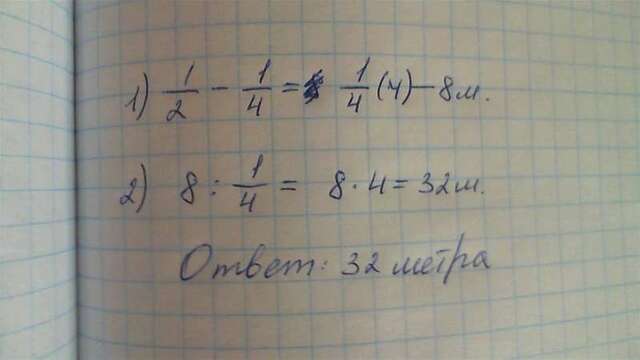 1) 1/2 - 1/4 = 1/4 (ч) - 8 м.
2) 8 : 1/4 = 8 · 4 = 32 м.
Ответ: 32 метра